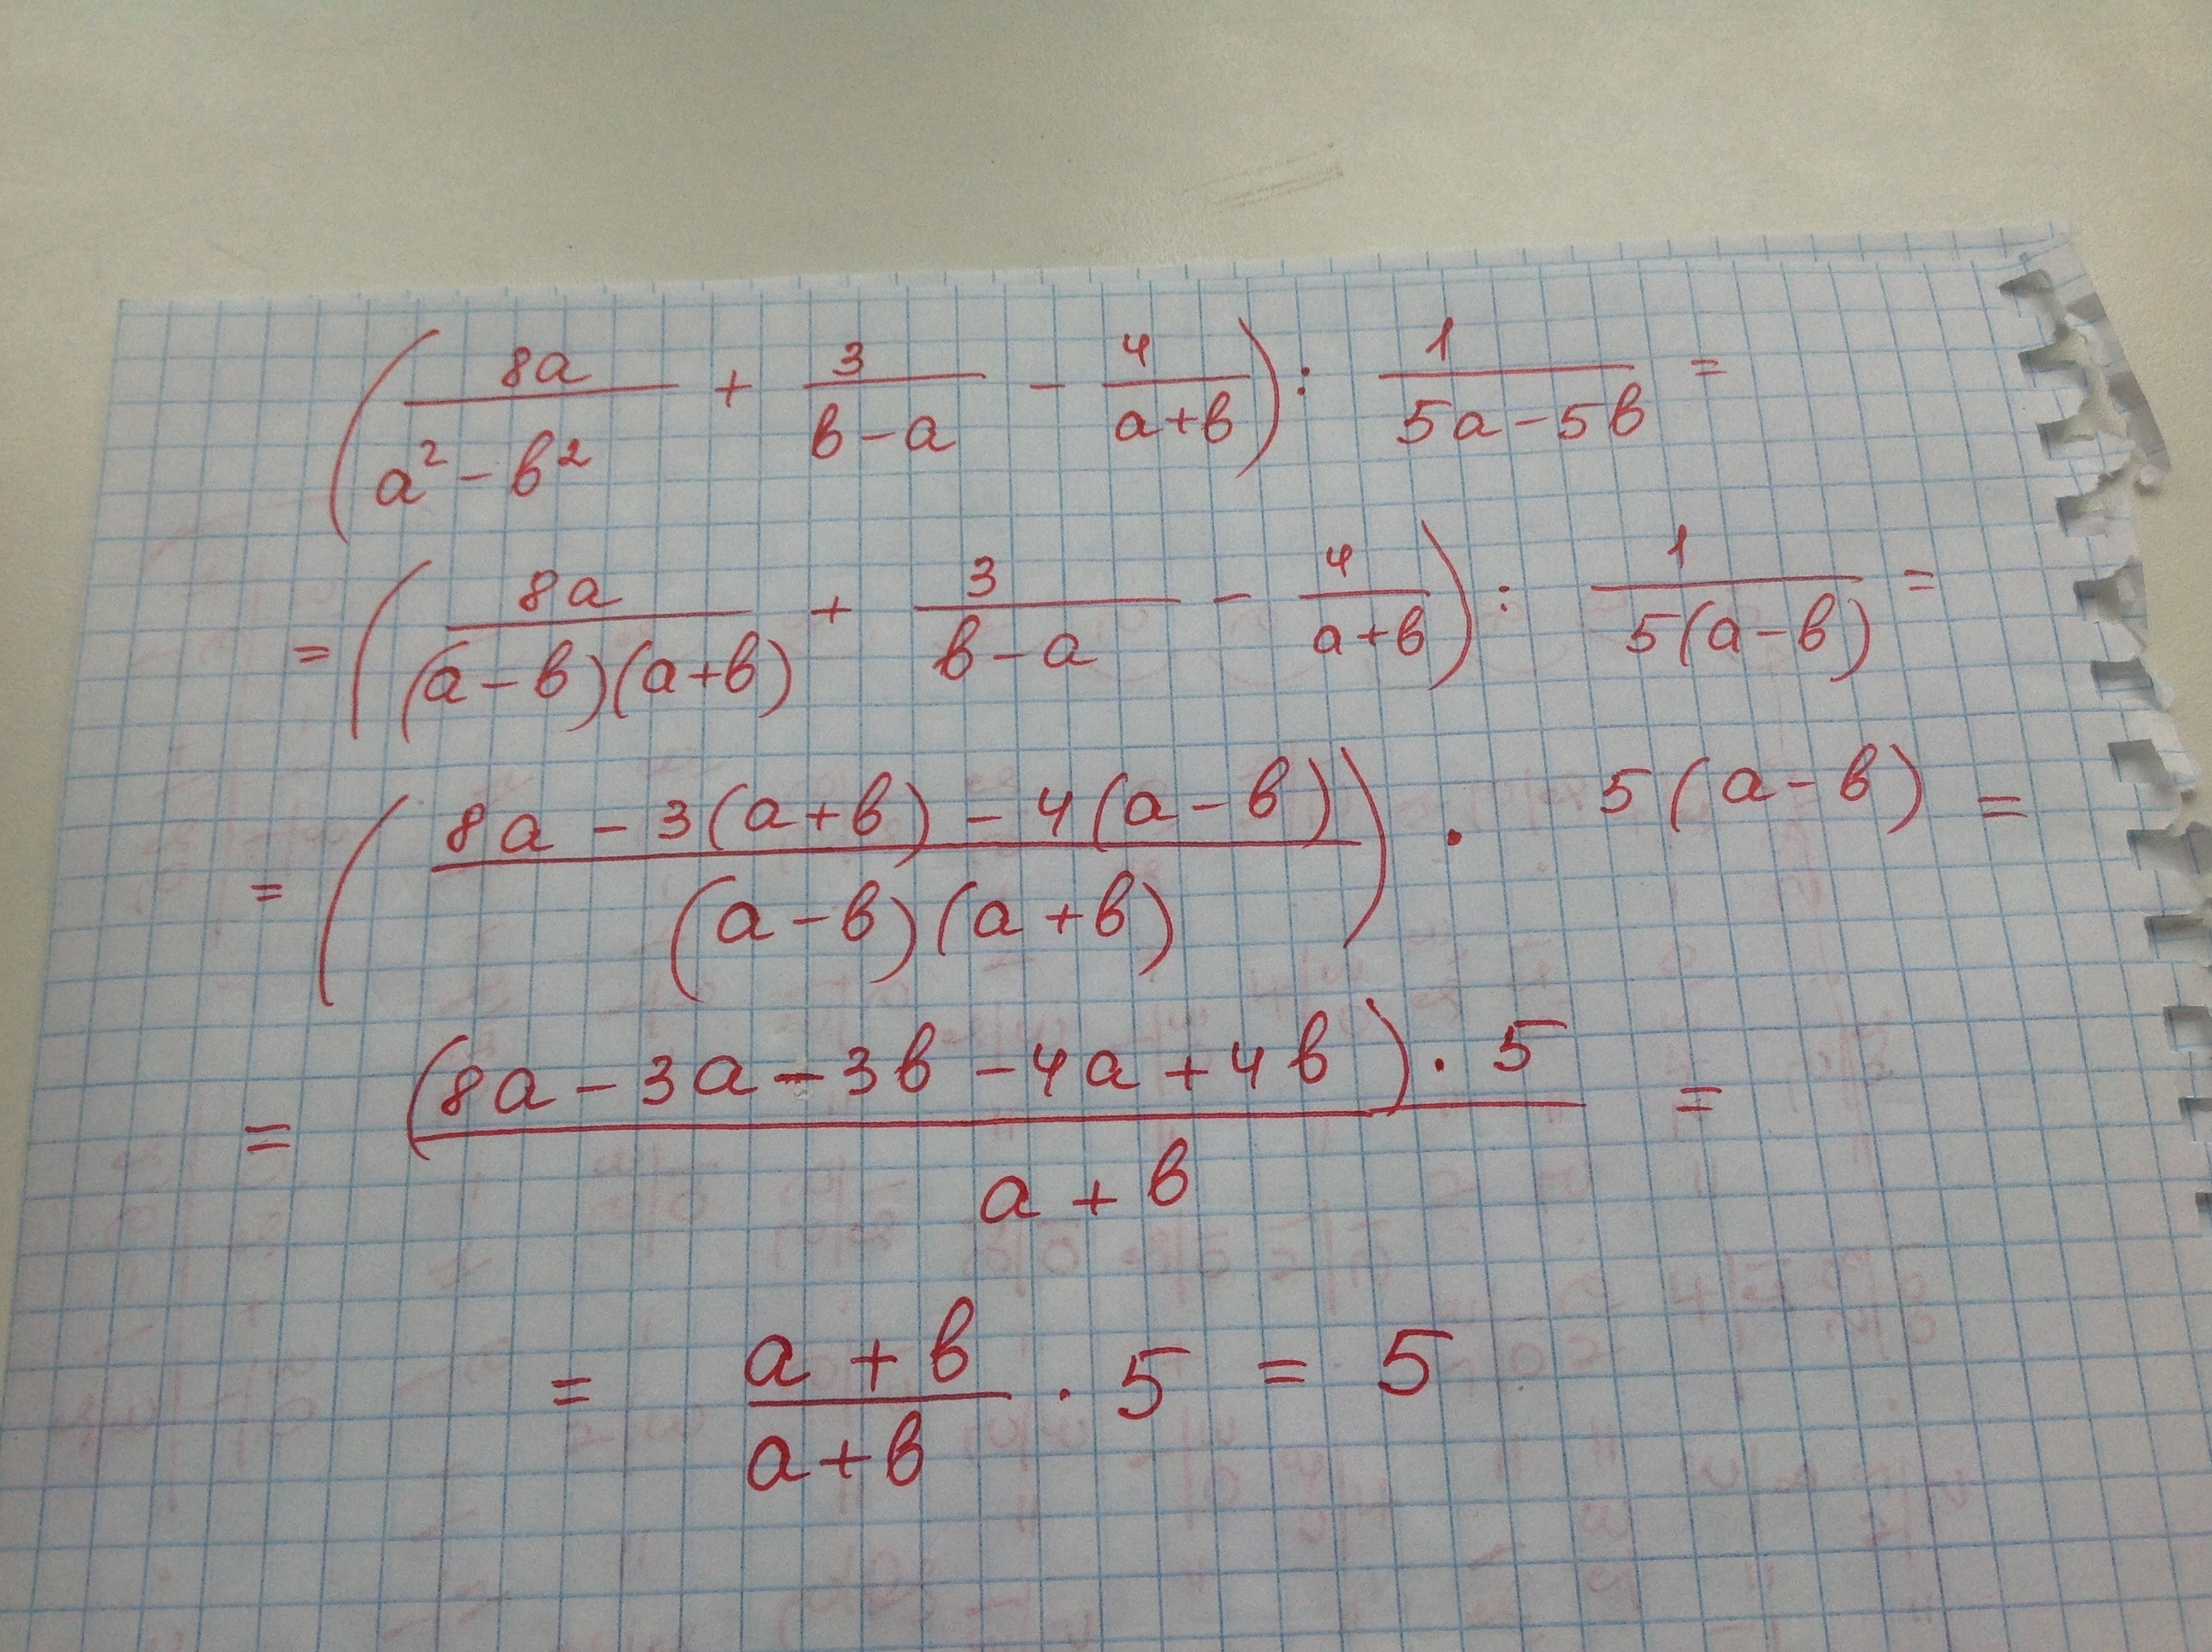 (8a/(a² - b²) + 3/(b - a) - 4/(a + b)) : 1/(5a - 5b) =
= (8a/((a - b)(a + b)) + 3/(b - a) - 4/(a + b)) : 1/(5(a - b)) =
= ((8a - 3(a + b) - 4(a - b))/((a - b)(a + b))) · 5(a - b) =
= ((8a - 3a - 3b - 4a + 4b) · 5)/(a + b) =
= (a + b)/(a + b) · 5 = 5